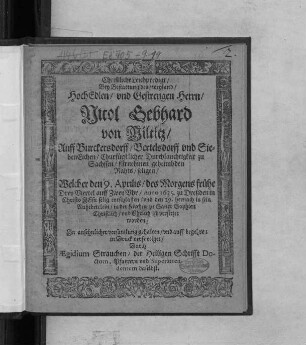 Christliche Leichpredigt/
Bey Bestattung des weyland/
HochEdlen/ und Gestrengen Herrn/
Nicol Gebhard
von Miltitz/
Auff Burckersdorff/ Bertelsdorff und Sie-
benEichen/ Churfürstlicher Durchlauchtigkeit zu
Sachsen/ fürnehmen geheimbden
Raths/ seligen/
Welcher den 9. Aprilis/ des Morgens frühe
Drey Viertel auff Zwey Uhr/ Anno 1635. zu Dreßden in
Christo selig entschlaffen und den 29. hernach in sein
Ruhebettlein in der Kirchen zu
Christlich/ und Ehrlich
worden/
gehalten/ und auff begehren
in Druck verfertiget/
Durch
Ægidium Strauchen/ der Heiligen Schrifft Do-
ctorn, Pfarrern und Superinten-
denten daselbst.